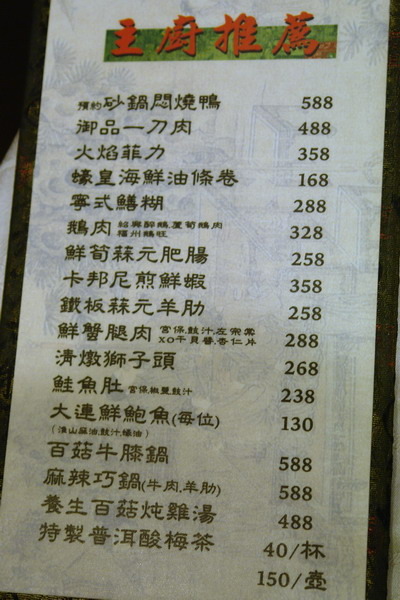 主廚推薦
預約砂鍋悶燒鴨 588
御品一刀肉 488
火焰菲力 358
蠔皇海鮮油條卷 168
寧式鱔糊 288
鵝肉 紹興醉鵝,蘆筍鵝肉 328
福州鵝旺
鮮筍蔴元肥腸 258
卡邦尼煎鮮蝦 358
鐵板蔴元羊肋 258
鮮蟹腿肉 宮保,豉汁,左宗棠 288
XO干貝醬,杏仁片
清燉獅子頭 268
鮭魚肚 宮保,椒鹽,豉汁 238
大連鮮鮑魚(每位) 130
(淮山麻油,豉汁,蠔油)
百菇牛膝鍋 588
麻辣巧鍋(牛肉,羊肋) 588
養生百菇炖雞湯 488
特製普洱酸梅茶 40/杯
150/壺